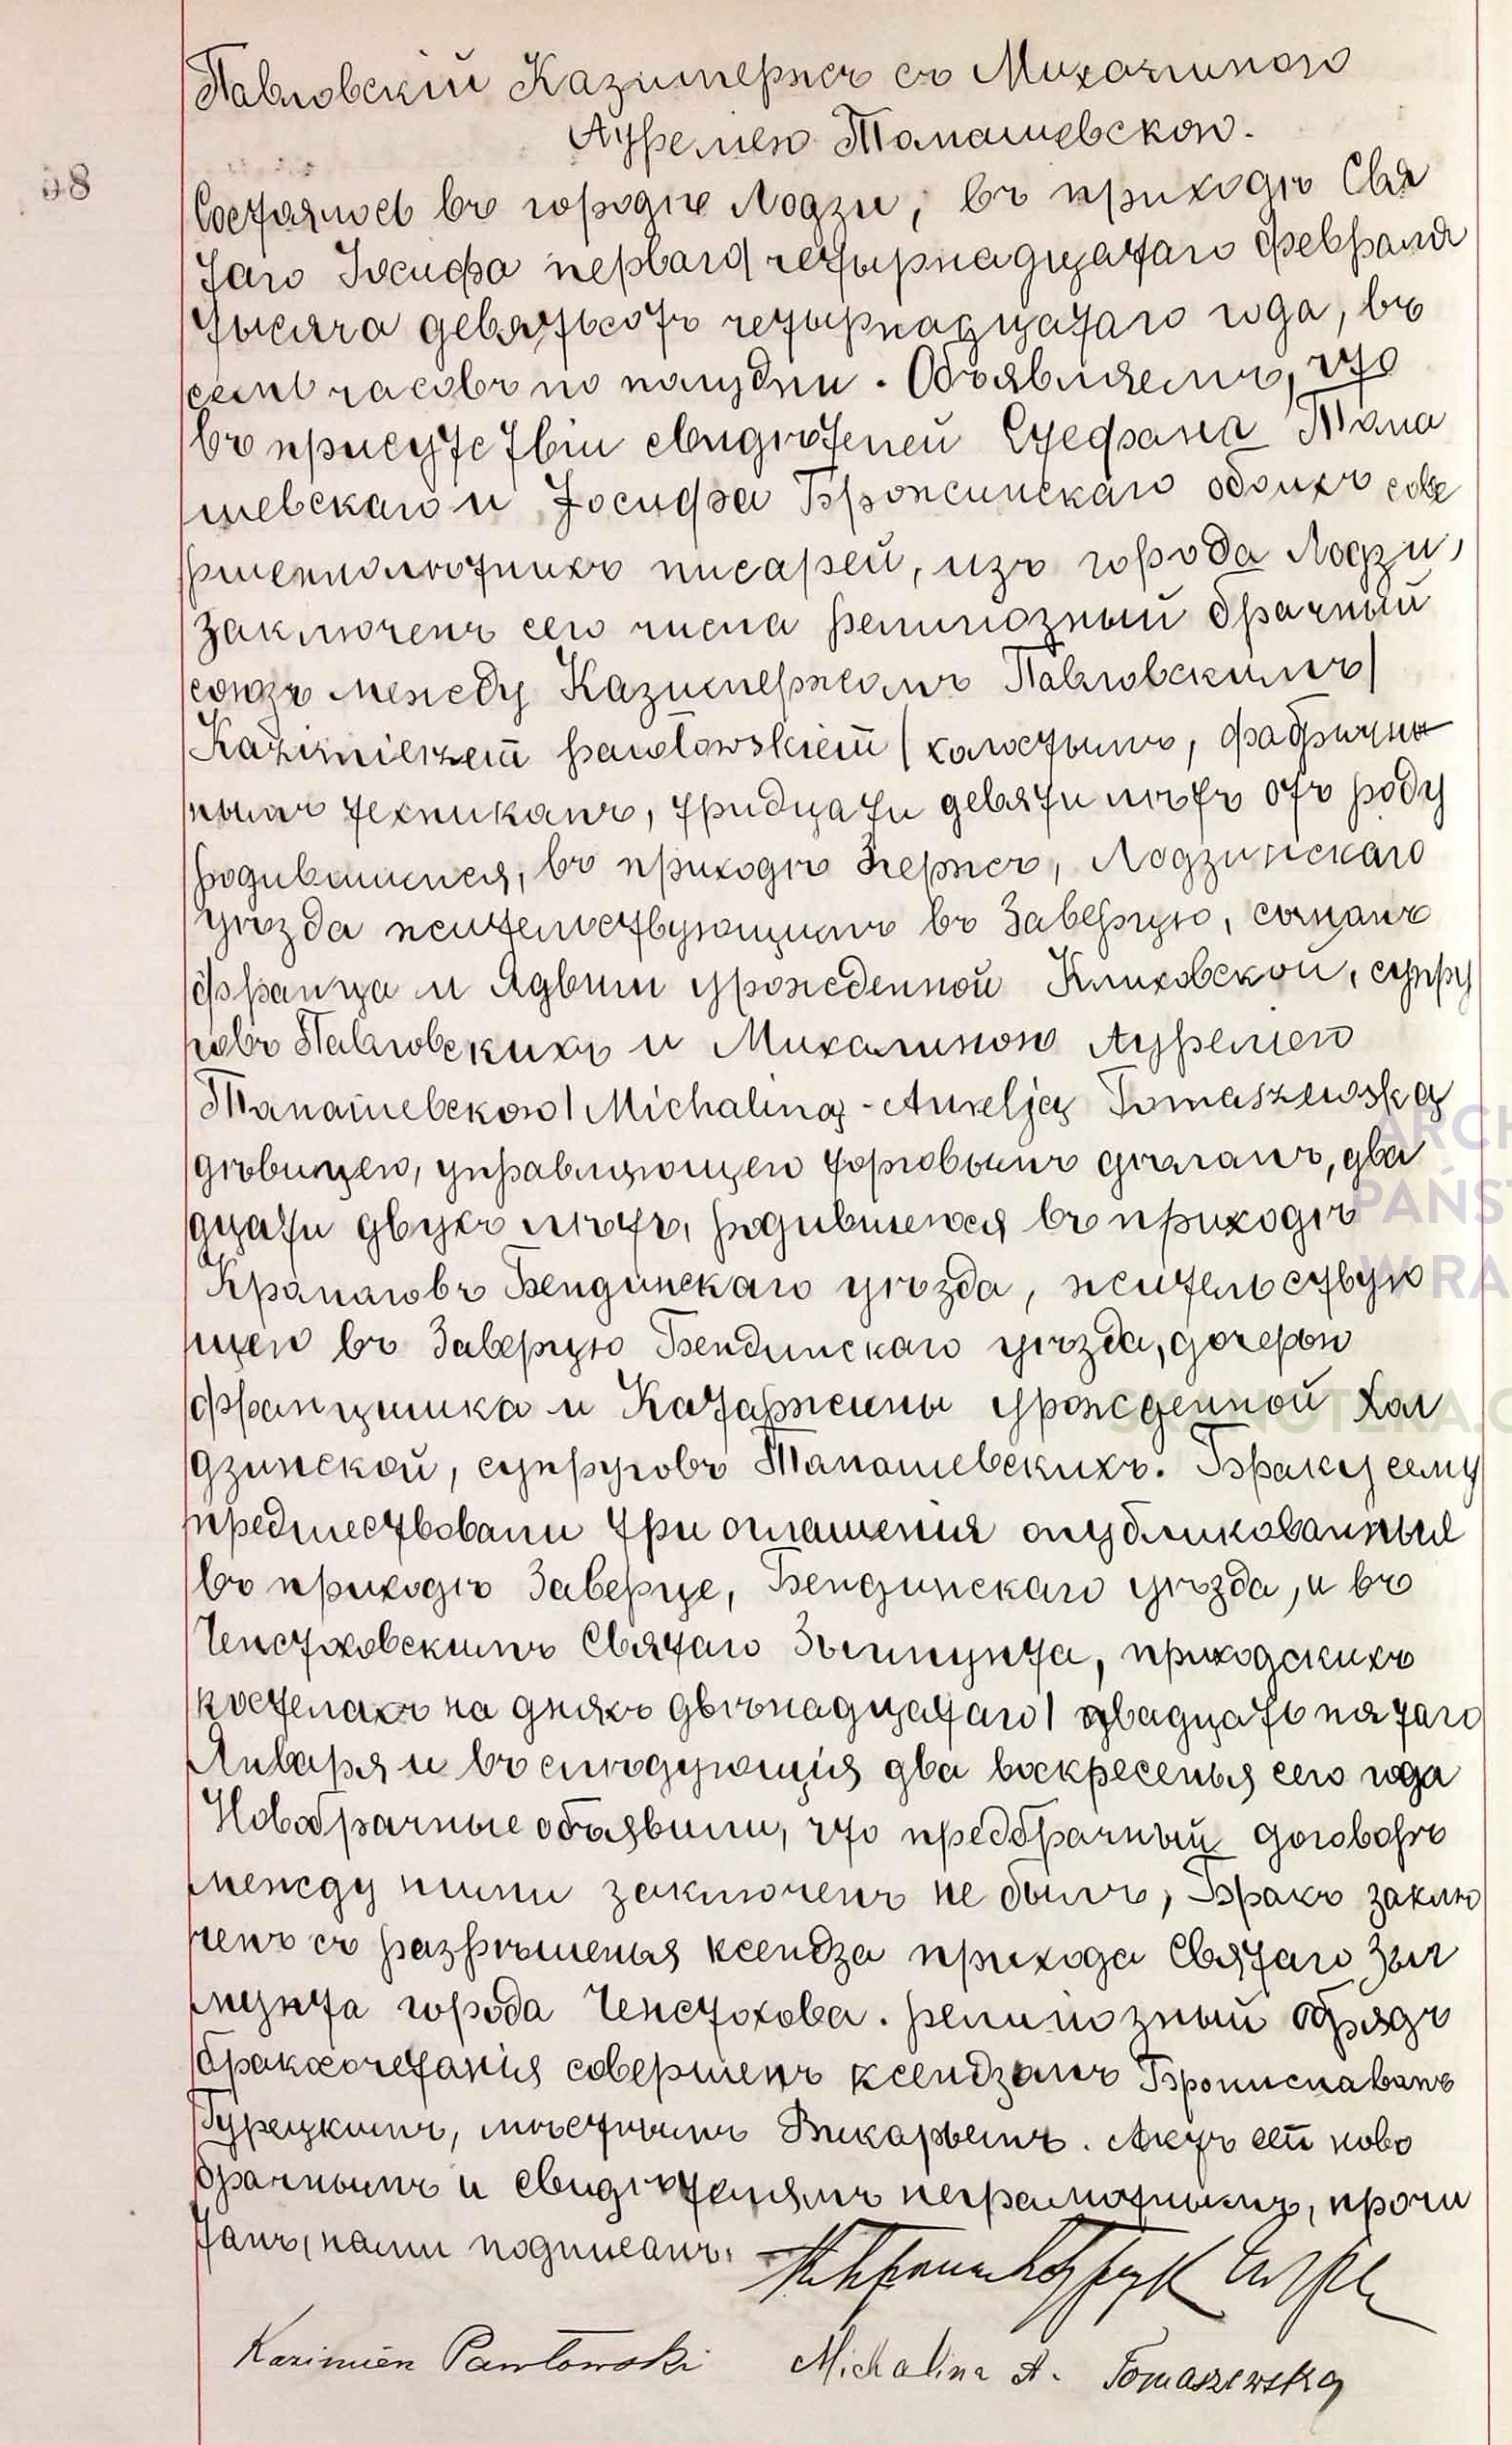 98
Павловскій Казимержъ съ Михалиною
Ауреліею Томашевскою.
Состоялось въ городѣ Лодзи, въ приходѣ Свя
таго Іосифа перваго/четырнадцатаго февраля
тысяча девятьсотъ четырнадцатаго года, въ
семь часовъ по полудни. Объявляемъ, что
въ присутствіи свидѣтелей Стефана Тома
шевскаго и Іосифа Бржосинскаго обоихъ сове
ршеннолѣтнихъ писарей, изъ города Лодзи,
заключенъ сего числа религіозный брачный
союзъ между Казимержомъ Павловскимъ/
Kazimierzem Pawłowskiem/холостымъ, фабрично
нымъ техникомъ, тридцати девяти лѣтъ отъ роду
родившимся, въ приходѣ Згержъ, Лодзинскаго
уѣзда жительствующимъ въ Заверцю, сыномъ
Франца и Ядвиги урожденной Клиховской, супру
говъ Павловскихъ и Михалиною Ауреліею
Томашевскою/Michaliną-Aurelją Tomaszewską
дѣвицею, управляющею торговымъ дѣломъ, два
дцати двухъ лѣтъ, родившеюся въ приходѣ
Кромоловъ Бендинскаго уѣзда, жительствую
щею въ Заверцю Бендинскаго уѣзда, дочерью
Францишка и Катаржины урожденной Хол
дзинской, супруговъ Томашевскихъ. Браку сему
предшествовали три оглашенія опубликованныя
въ приходѣ Заверце, Бендинскаго уѣзда, и въ
Ченстоховскимъ Святаго Зыгмунта, приходскихъ
костелахъ на дняхъ двѣнадцатаго/двадцать пятаго
Января и въ слѣдующія два воскресенья сего года
Новобрачные объявили, что предбрачный договоръ
между ними заключенъ не былъ, Бракъ заклю
ченъ съ разрѣшенья ксендза прихода Святаго Зыг
мунта города Ченстохова. Религіозный обрядъ
бракосочетанія совершенъ ксендзомъ Брониславомъ
Гурецкимъ, мѣстнымъ Викарьемъ. Актъ сей ново
брачнымъ и свидѣтелямъ неграмотнымъ, прочи
танъ, нами подписанъ.
Kazimierz Pawłowski Michalina A. Tomaszewska
ARCH
PAŃST
W RA
SKANOTEKA.